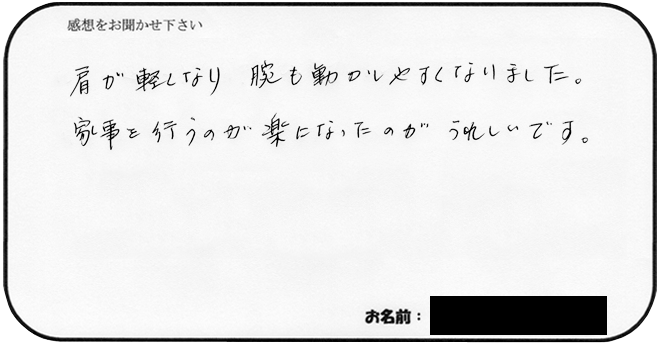 感想をお聞かせ下さい
肩が軽くなり 腕も動かしやすくなりました。
家事を行うのが楽になったのが うれしいです。
お名前：